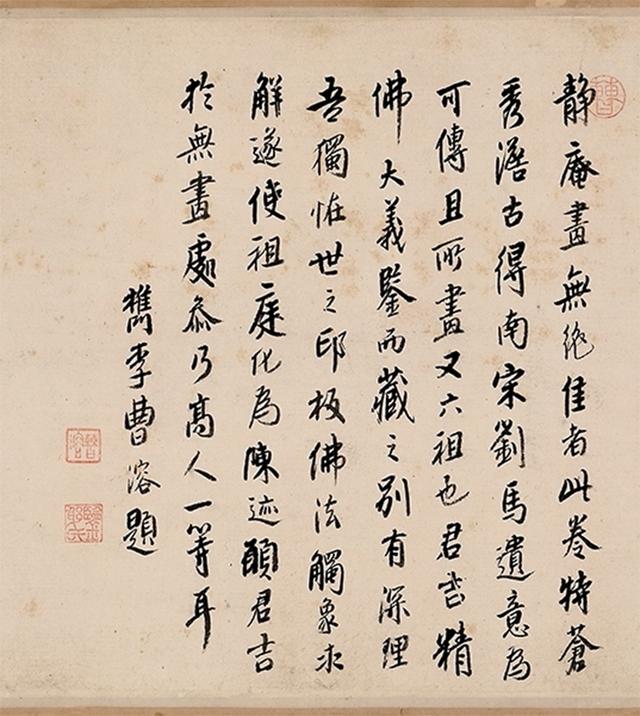 靜庵畫無絕佳者此卷特蒼
秀澹古得南宋劉馬遺意為
可傳且所畫又六祖也君吉精
佛大義鑒而藏之別有深理
吾獨恠世之印板佛法觸象求
解遂使祖庭化為陳迹願君吉
於無畫處叅乃高人一等耳
檇李曹溶題
曹溶